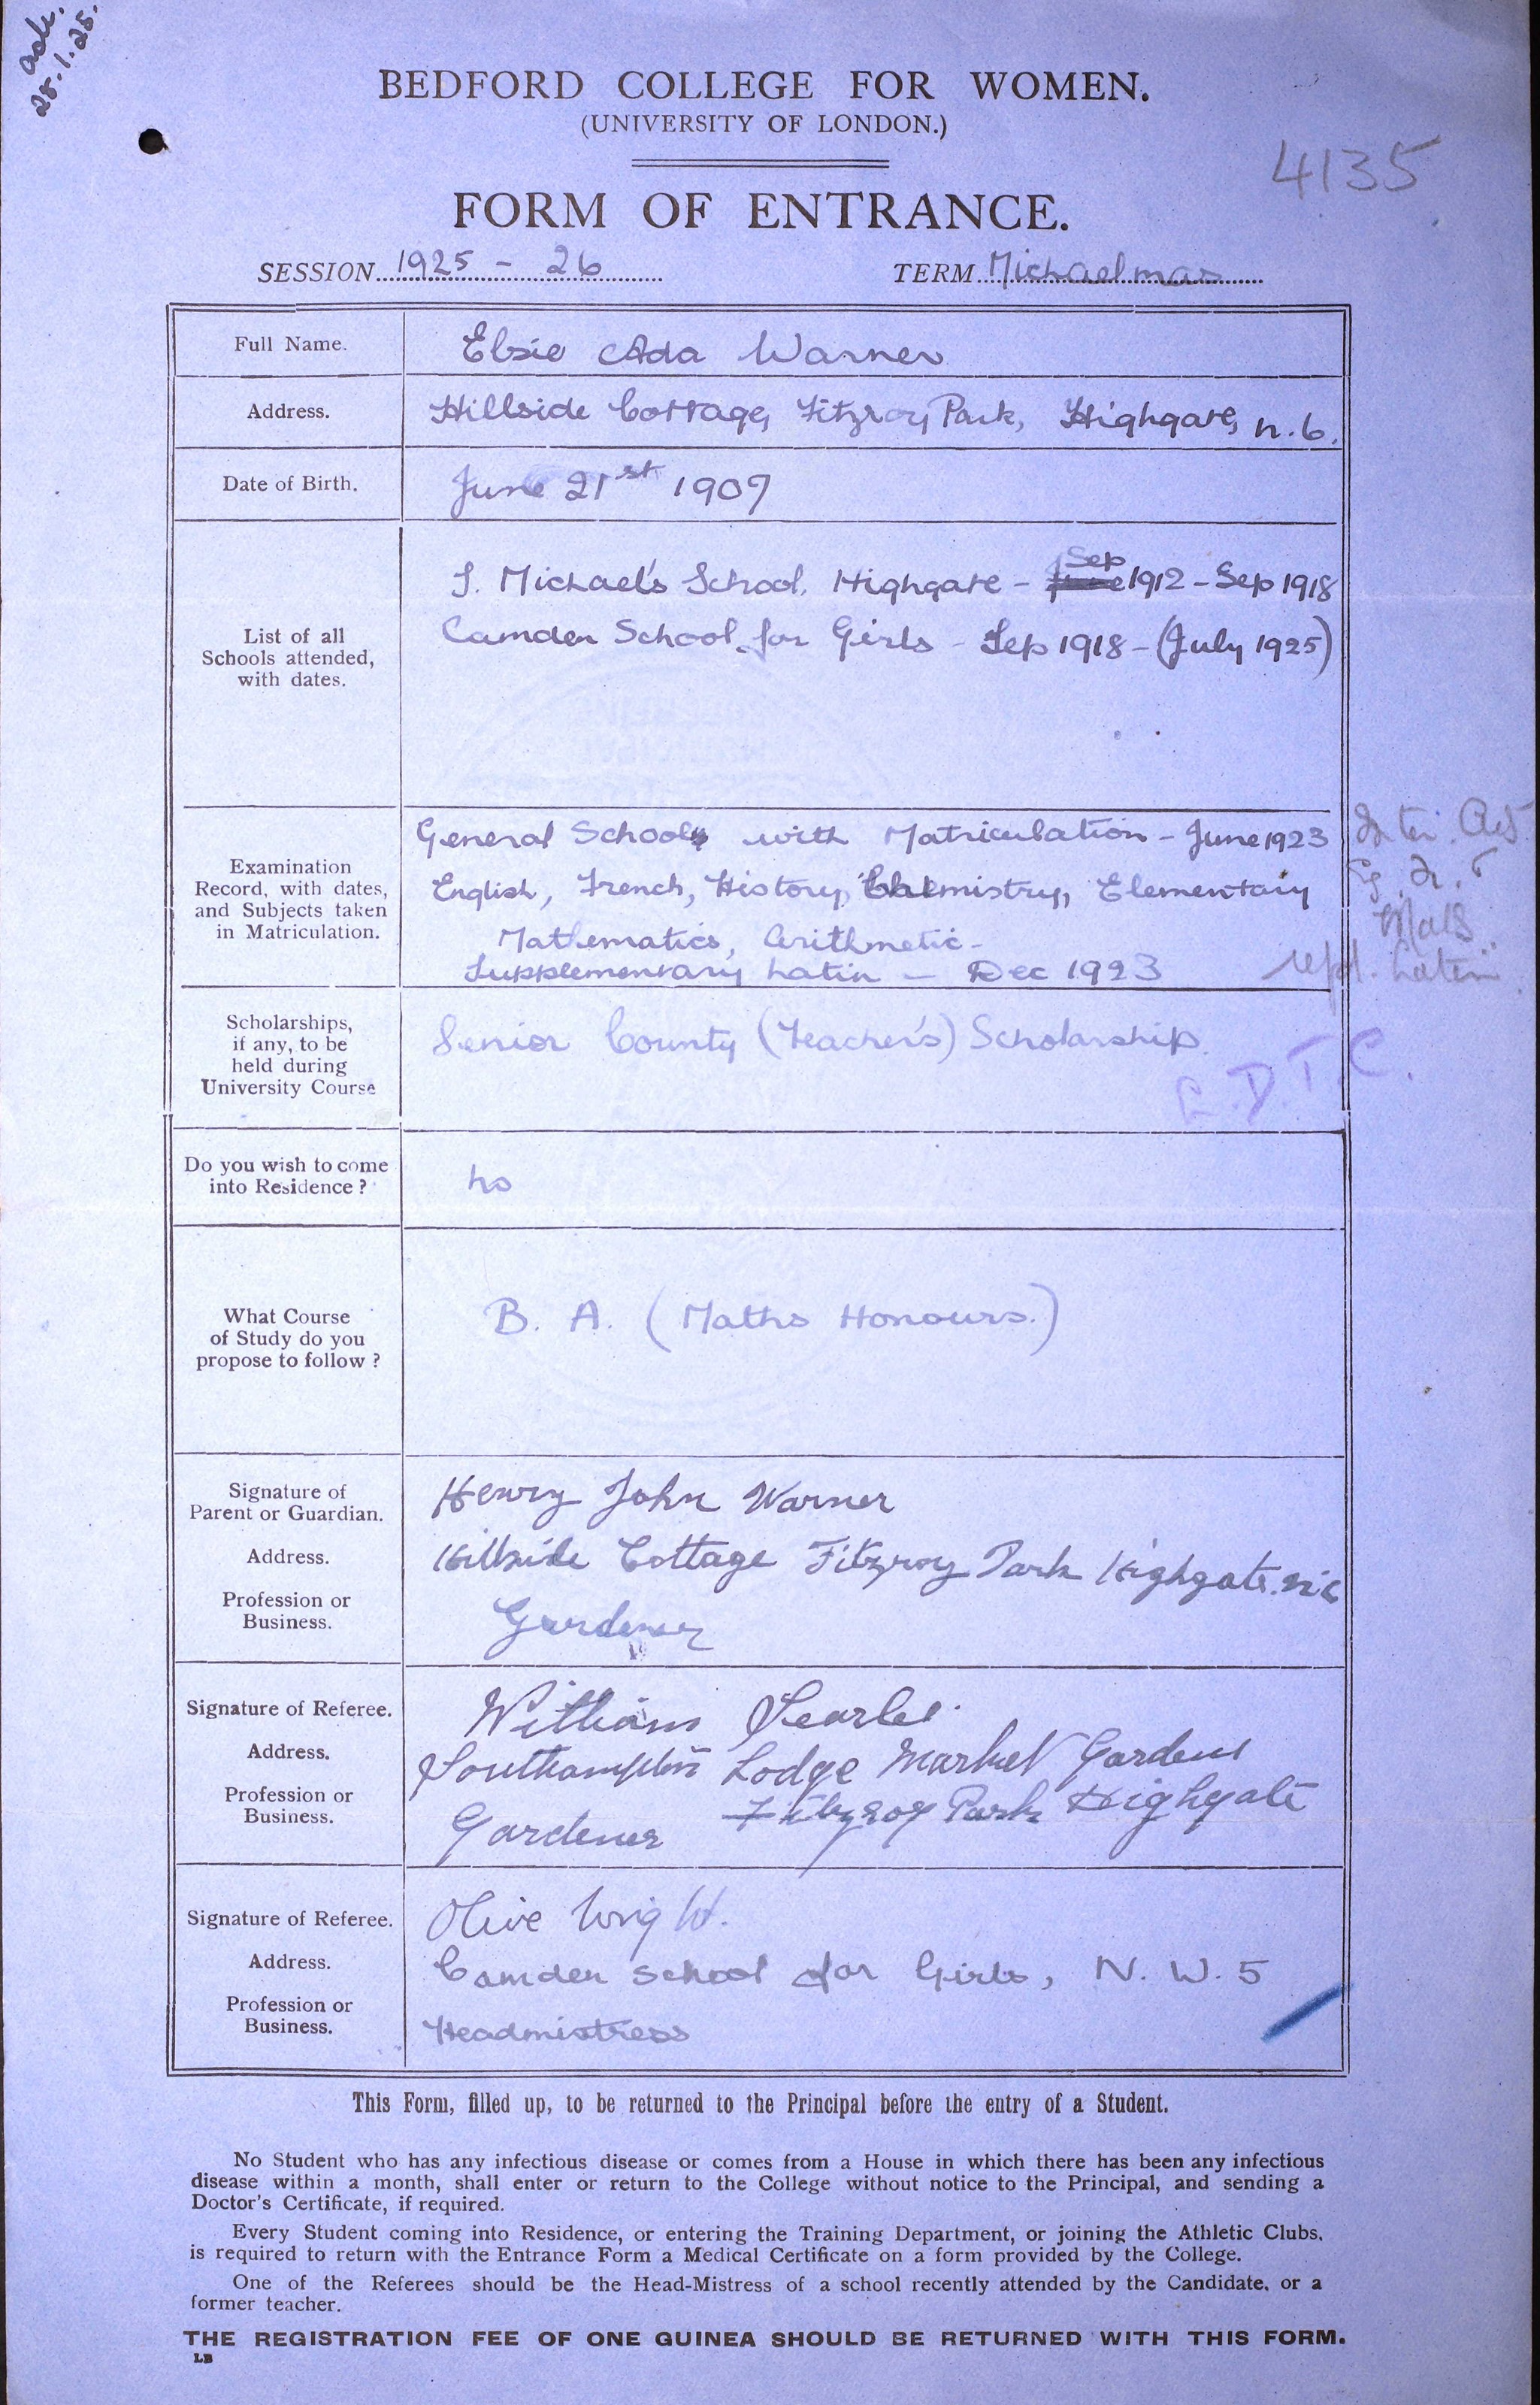 ack.
28.1.25.
BEDFORD COLLEGE FOR WOMEN.
(UNIVERSITY OF LONDON.)
4135
FORM OF ENTRANCE.
SESSION 1925 - 26 TERM Michaelmas
Full Name. Elsie Ada Warner
Address. Hillside Cottage, Fitzroy Park, Highgate, N.6.
Date of Birth. June 21st 1907
List of all
Schools attended,
with dates.
S. Michael's School, Highgate - Sep 1912 - Sep 1918
Camden School for Girls - Sep 1918 - (July 1925)
Examination
Record, with dates,
and Subjects taken
in Matriculation.
General Schools with Matriculation - June 1923
English, French, History, Chemistry, Elementary
Mathematics, Arithmetic -
Supplementary Latin - Dec 1923
Maths
Latin
Scholarships,
if any, to be
held during
University Course
Senior County (Teacher's) Scholarship.
L.D.T.C.
Do you wish to come
into Residence ?
No
What Course
of Study do you
propose to follow ?
B. A. (Maths Honours.)
Signature of
Parent or Guardian.
Henry John Warner
Address. Hillside Cottage Fitzroy Park Highgate. N 6
Profession or
Business.
Gardener
Signature of Referee. William Searle.
Address. Southampton Lodge Market Gardens
Fitzroy Park Highgate
Profession or
Business.
Gardener
Signature of Referee. Olive Wright.
Address. Camden School for Girls, N. W. 5
Profession or
Business.
Headmistress
This Form, filled up, to be returned to the Principal before the entry of a Student.
No Student who has any infectious disease or comes from a House in which there has been any infectious
disease within a month, shall enter or return to the College without notice to the Principal, and sending a
Doctor's Certificate, if required.
Every Student coming into Residence, or entering the Training Department, or joining the Athletic Clubs,
is required to return with the Entrance Form a Medical Certificate on a form provided by the College.
One of the Referees should be the Head-Mistress of a school recently attended by the Candidate, or a
former teacher.
THE REGISTRATION FEE OF ONE GUINEA SHOULD BE RETURNED WITH THIS FORM.
LB